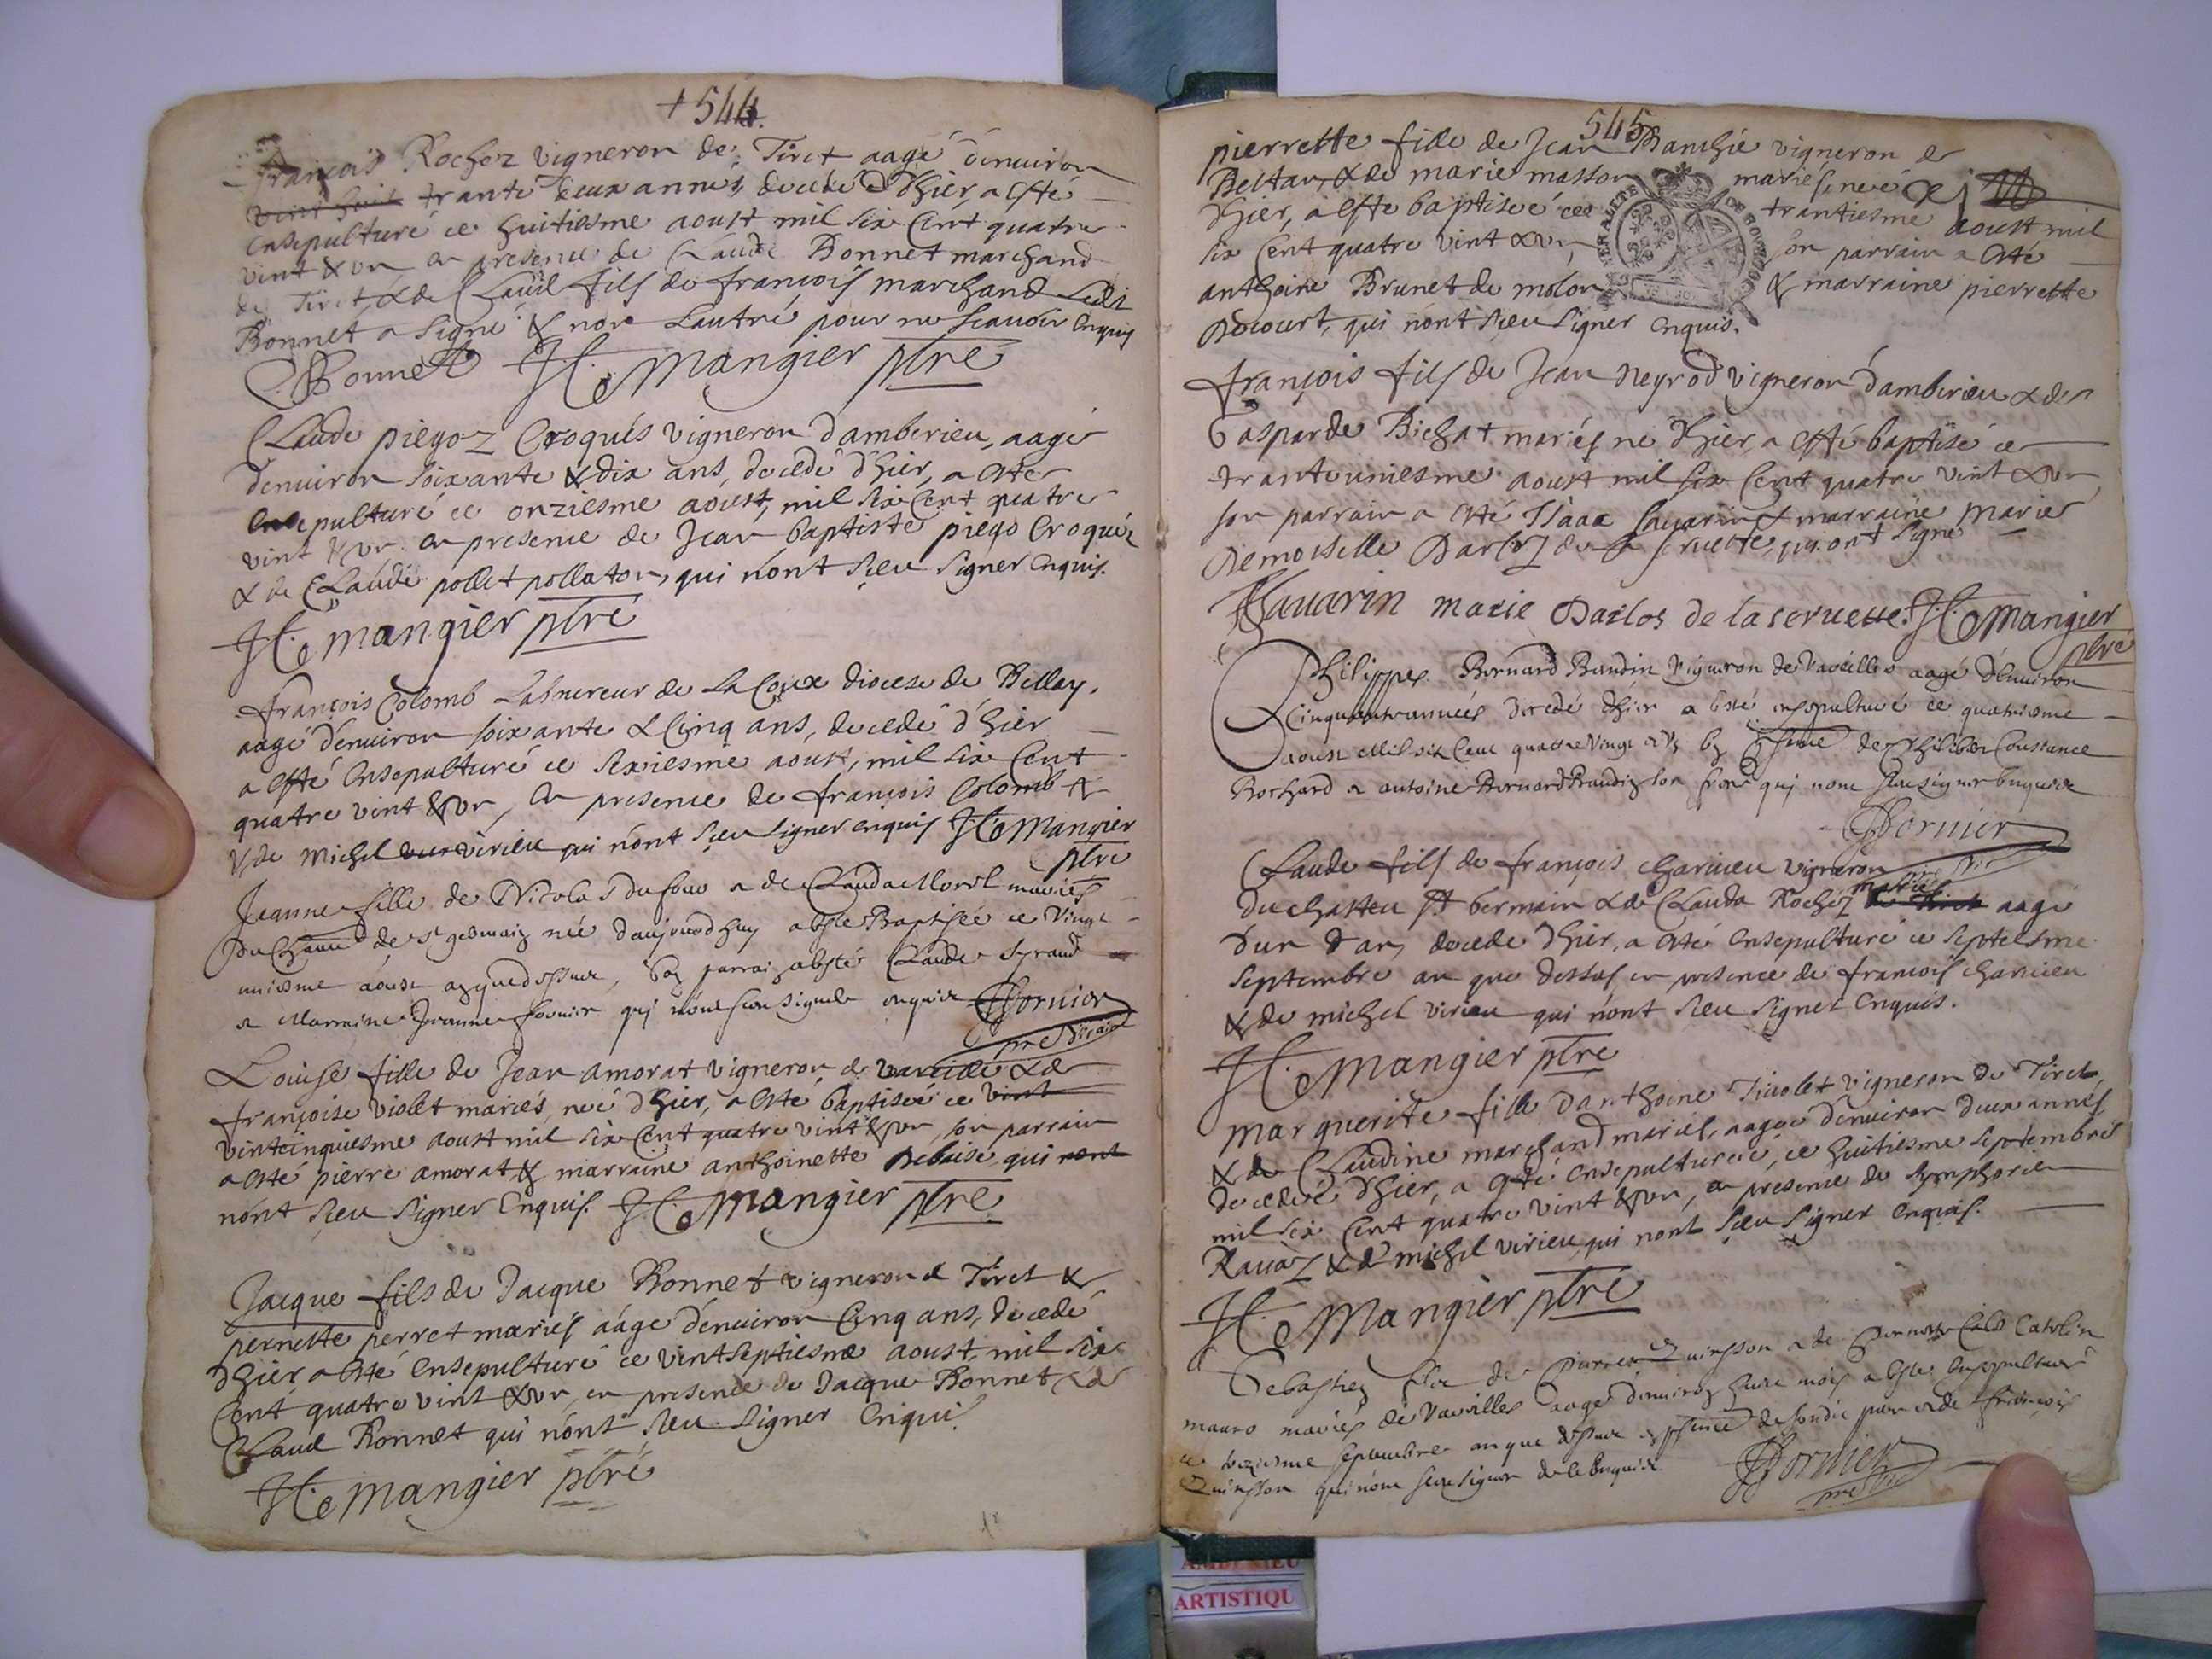 + 544.
françois Rochez vigneron de Tiret aagé denuiron
vint huit trante deux années decedé d'hier, a esté
ensepulturé ce huitiesme aoust mil six cent quatre
vint & un en presence de Claude Bonnet marchand
de Tiret & de Claude fils de françois marchand ledit
Bonnet a signé & non lautre pour ne scauoir enquis
CBonnet H. Mangier ptre
Claude piegoz Croqués vigneron damberieu, aagé
denuiron soixante & dix ans, decedé d'hier, a esté
ensepulturé ce onziesme aoust, mil six cent quatre
vint & un en presence de Jean baptiste piego Croquéz
& de Claude pollet pollaton, qui n'ont sceu signer enquis.
H. Mangier ptre
françois Colomb Laboureur de La Coux diocese de Bellay,
aagé d'enuiron soixante & cinq ans, decedé d'hier
a esté ensepulturé ce sexiesme aoust, mil six cent
quatre vint & un, en presence de françois Colomb &
& de Michel virieu qui n'ont sceu signer enquis H. Mangier
ptre
Jeanne fille de Nicolas Dufour & de Clauda Morel mariés
Du Chateau de st germain née daujourdhuy a esté Baptisée ce vingt
uniesme aoust an que dessus, son parrain a esté Claude
& Marraine Jeanne fournier qui n'ont sceu signer enquis Dornier
ptre vicaire
Louise fille de Jean amorat vigneron de vareille & de
françoise violet mariés, née d'hier, a esté baptisée ce vint
vintcinquiesme aoust mil six cent quatre vint & un, son parrain
a esté pierre amorat & marraine anthoinette Debaise, qui nont
nont sceu signer enquis. H. Mangier ptre
Jacque fils de Jacque Bonnet vigneron de Tiret &
pernette perret mariés aagé d'enuiron cinq ans, decedé
d'hier a esté ensepulturé ce vintseptiesme aoust mil six
cent quatre vint & un, en presence de Jacque Bonnet & de
Claude Bonnet qui n'ont sceu signer enquis
H. Mangier ptre
545
pierrette fille de Jean Banchié vigneron de
Bettan, & de marie masson mariés, neé
d'hier, a esté baptiseé ce trantiesme aoust mil
six cent quatre vint & un, son parrain a esté
anthoine Brunet de molon & marraine pierrette
Decourt, qui n'ont sceu signer enquis.
françois fils de Jean Neyrod vigneron d'amberieu & de
Gasparde Bichat mariés né d'hier, a esté baptisé ce
trantevniesme aoust mil six cent quatre vint & un
son parrain a esté Isaac sauarin & marraine Marie
Demoiselle Darloz de la seruette, qui ont signé
ISauarin marie Darlos de laseruette. H. Mangier
ptre
Philippes Bernard Baudin Vigneron de Vareilles aagé d'enuiron
cinquante années decedé d'hier a esté ensepulturé ce quatriesme
aoust Mil six cent quatre vingt et un en presence de Philiber Constance
Bochard & antoine Bernard Baudin son frere qui n'ont sceu signer enquis
Dornier
Claude fils de françois charuieu vigneron
du chasteu St Germain & de Clauda Rochéz mariés de Tiret aagé
d'un d'an, decedé d'hier, a esté ensepulturé ce septiesme
septembre an que dessus en presence de françois charuieu
& de michel virieu qui n'ont sceu signer enquis.
H. Mangier ptre
marguerite fille d'anthoine Tiuolet vigneron de Tiret,
& de Claudine marchand mariés, aageé denuiron deux années
decedeé d'hier, a esté ensepultureé, ce huitiesme septembre
mil six cent quatre vint & un, en presence de symphorien
Rauaz & de michel virieu qui n'ont sceu signer enquis.
H. Mangier ptre
Sebastien fils de Pierre Quinsson & de Pernette Catolin
mariés de Vareilles aagé d'enuiron huit mois a esté ensepulturé
ce septembre an que dessus en presence de pere & de françois
Quinsson qui n'ont sceu signer de ce enquis. Dornier
ptre
GENERALITE DE BOURGOGNE
AMBERIEU
ARTISTIQU